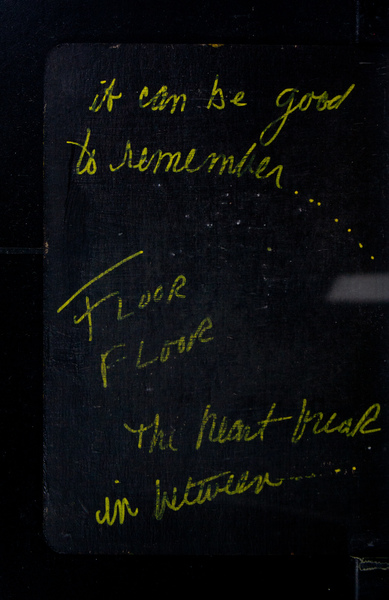 it can be good
to remember.......
FLOOR
FLOOR
The heart break
in between.....